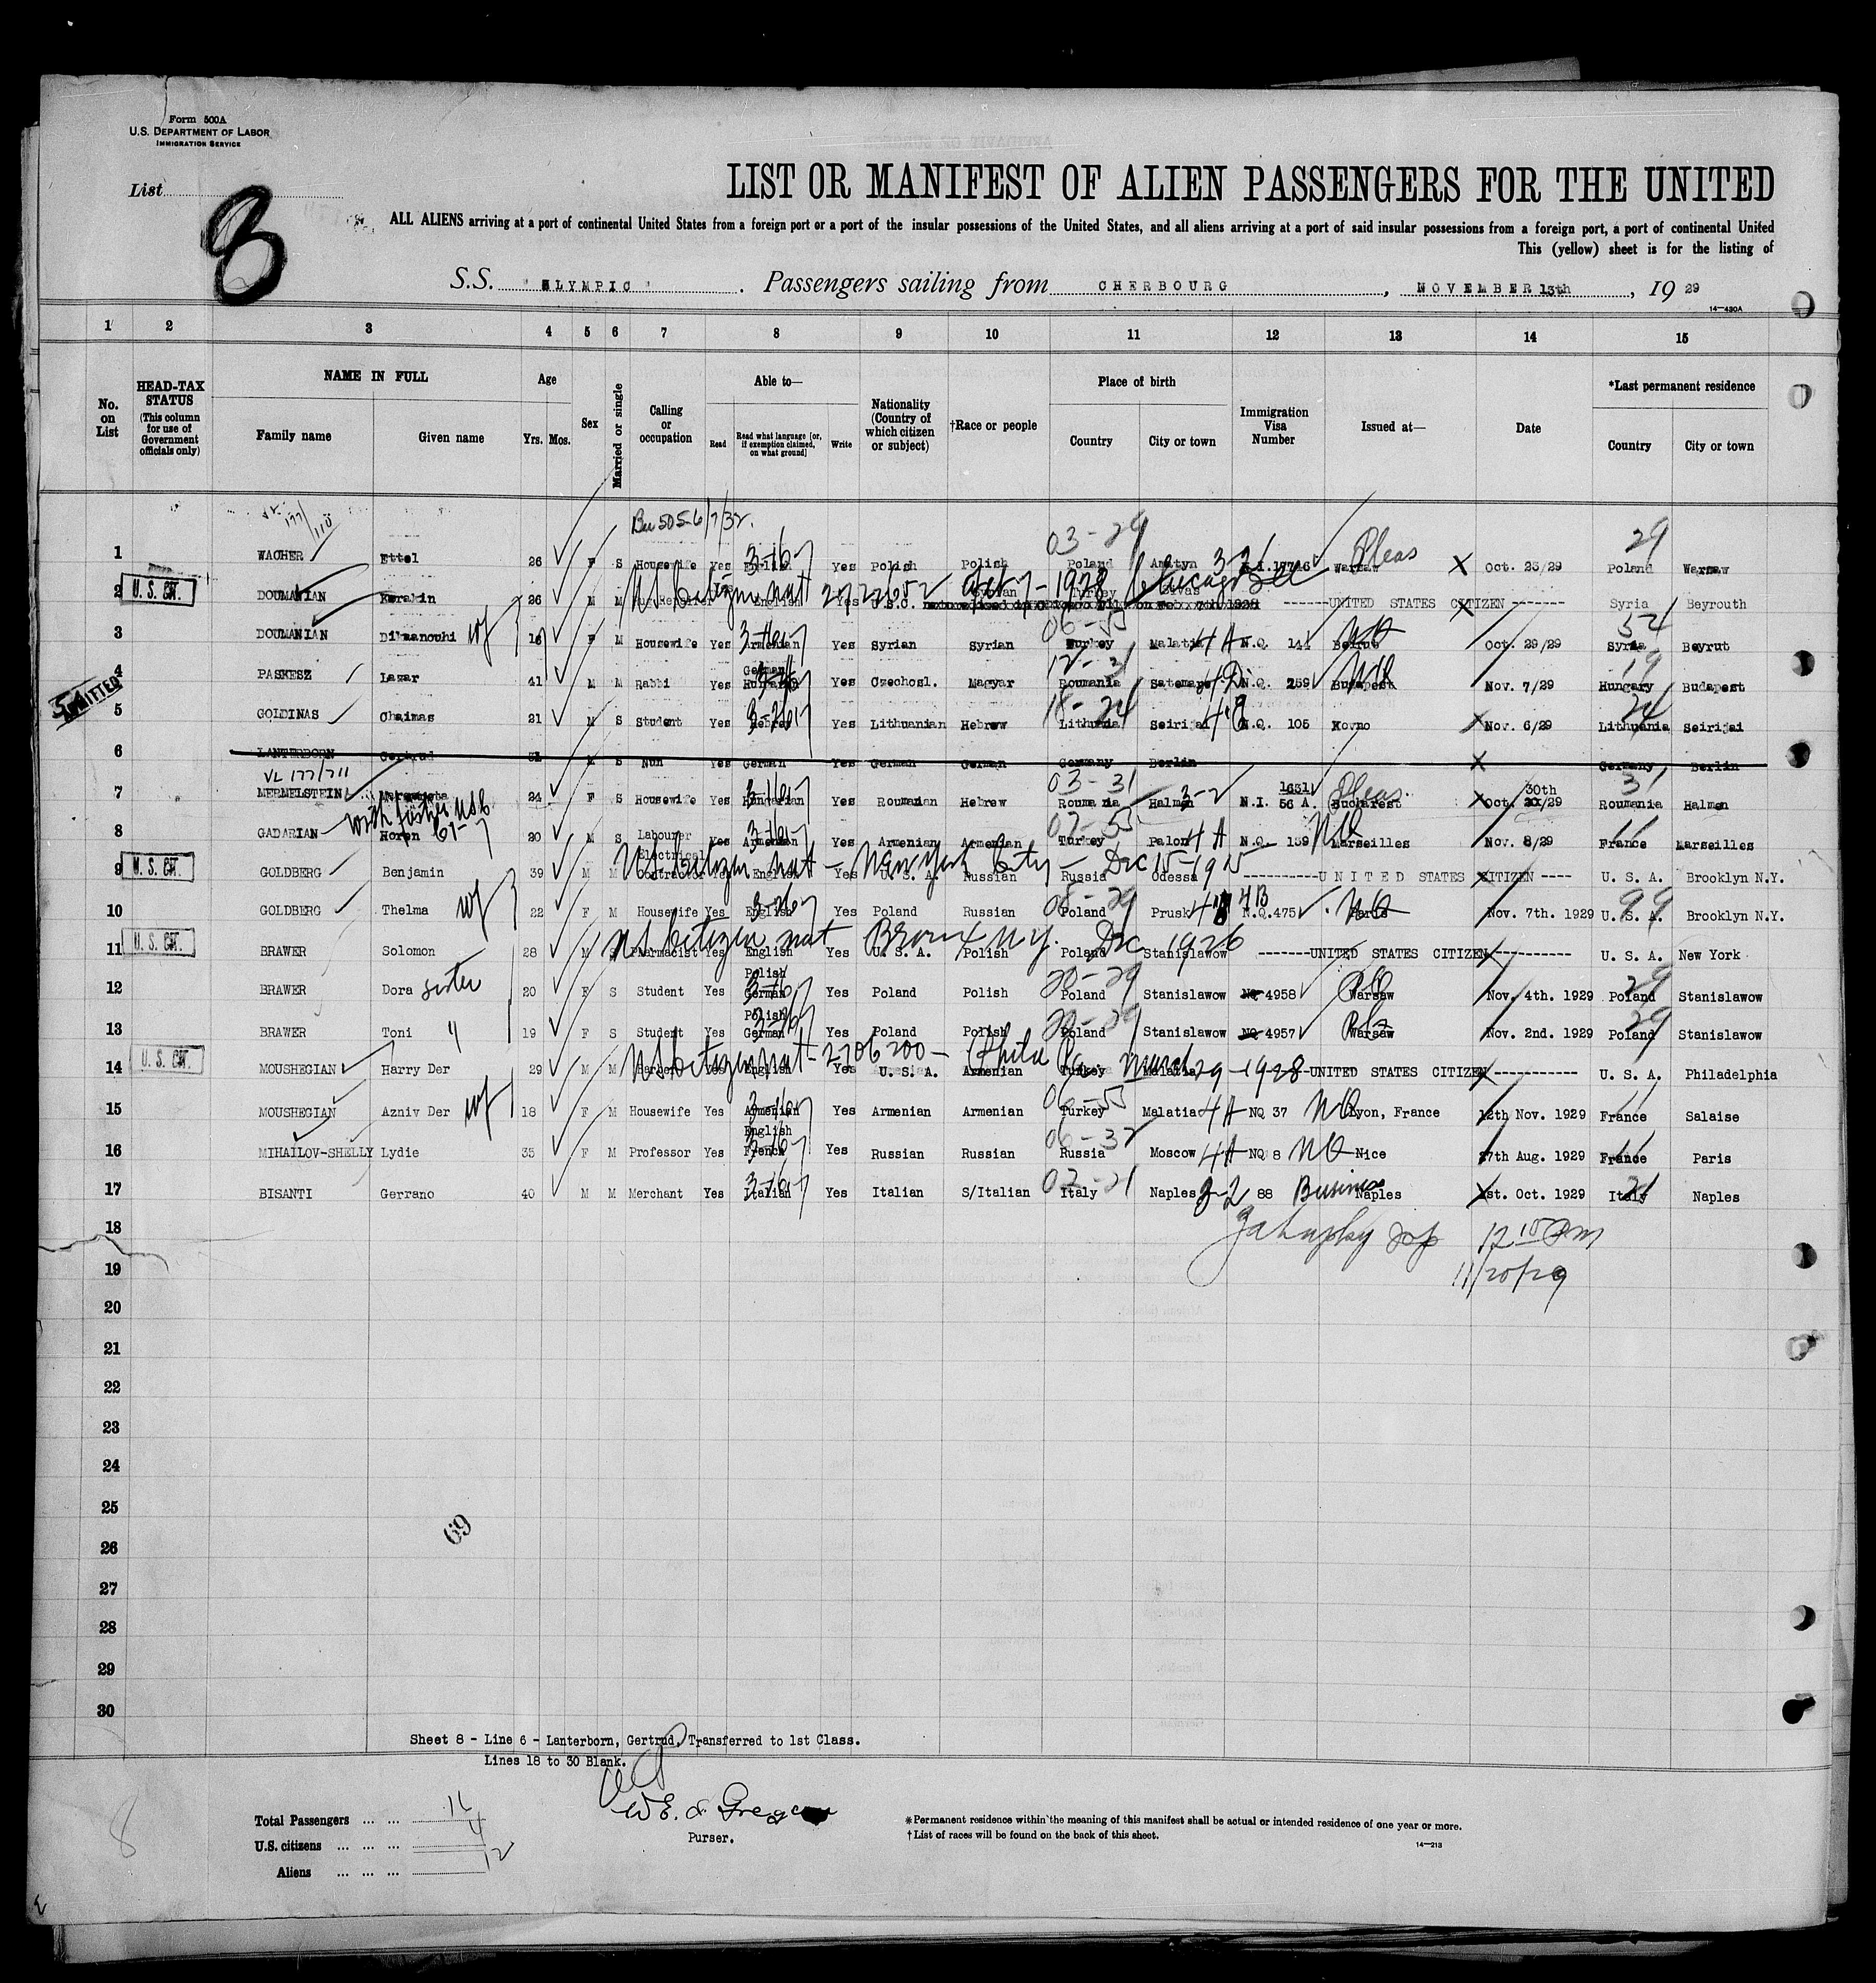 Form 500A
U.S. DEPARTMENT OF LABOR
IMMIGRATION SERVICE
List
8
LIST OR MANIFEST OF ALIEN PASSENGERS FOR THE UNITED
ALL ALIENS arriving at a port of continental United States from a foreign port or a port of the insular possessions of the United States, and all aliens arriving at a port of said insular possessions from a foreign port, a port of continental United
This (yellow) sheet is for the listing of
S.S. "OLYMPIC". Passengers sailing from CHERBOURG, NOVEMBER 13th, 19 29
14—430A
1 2 3 4 5 6 7 8 9 10 11 12 13 14 15
No. on List
HEAD-TAX STATUS (This column for use of Government officials only)
NAME IN FULL
Family name Given name
Age
Yrs. Mos.
Sex
Married or single
Calling or occupation
Able to—
Read Read what language [or, if exemption claimed, on what ground] Write
Nationality (Country of which citizen or subject)
†Race or people
Place of birth
Country City or town
Immigration Visa Number
Issued at—
Date
*Last permanent residence
Country City or town
1 WACHER Ettel 26 F S Housewife Yes 3-16 Yes Polish Polish Poland 03-29 3-2 Warsaw Pleas Oct. 23/29 Poland 29 Warsaw
2 U. S. CIT. DOUMANIAN 26 M M US citizen nat 2722652 Oct 7-1928 Chicago Ill Yes U.S.C. ------UNITED STATES CITIZEN ----- Syria Beyrouth
3 DOUMANIAN Dilmanouhi wf 18 F M Housewife Yes Armenian Yes Syrian Syrian Turkey Malatia 4A N.Q. 144 Beirut NQ Oct. 29/29 Syria 54 Beyrut
4 PASKESZ Lazar 41 M M Rabbi Yes German Hungarian Yes Czechosl. Magyar Roumania 4D N.Q. 259 Budapest NQ Nov. 7/29 Hungary 19 Budapest
ADMITTED
5 GOLDINAS Chaimas 21 M S Student Yes Hebrew Yes Lithuanian Hebrew Lithuania 18-24 Seirijai N.Q. 105 Kovno Nov. 6/29 Lithuania 24 Seirijai
6 LANTERBORN Gertrud S Nun Yes German Yes German German Germany Berlin Germany Berlin
7 MERMELSTEIN 24 F S Housewife Yes Hungarian Yes Roumanian Hebrew Roumania 03-31 Halmen 3-2 N.I. 1631 56 A. Bucharest Pleas. Oct. 30th/29 Roumania 31 Halmen
8 GADARIAN 20 M S Labourer Yes Armenian Yes Armenian Armenian Turkey 4A N.Q. 159 Marseilles NQ Nov. 8/29 France 11 Marseilles
9 U. S. CIT. GOLDBERG Benjamin 39 M M Electrical Contractor Yes English Yes U. S. A. Russian Russia Odessa US citizen nat - New York City - Dec 15-1915 ----------UNITED STATES CITIZEN ---- U. S. A. Brooklyn N.Y.
10 GOLDBERG Thelma wf 22 F M Housewife Yes English Yes Poland Russian Poland Prusk 4B N.Q.475 Paris NQ Nov. 7th. 1929 U. S. A. 99 Brooklyn N.Y.
11 U. S. CIT. BRAWER Solomon 28 M S Pharmacist Yes English Yes U. S. A. Polish Poland Stanislawow US citizen nat Bronx N.Y. Dec 1926 -------UNITED STATES CITIZEN----------- U. S. A. New York
12 BRAWER Dora sister 20 F S Student Yes Polish German Yes Poland Polish Poland 20-29 Stanislawow NQ 4958 Warsaw Nov. 4th. 1929 Poland 29 Stanislawow
13 BRAWER Toni " 19 F S Student Yes Polish German Yes Poland Polish Poland 20-29 Stanislawow NQ 4957 Warsaw Nov. 2nd. 1929 Poland 29 Stanislawow
14 U. S. CIT. MOUSHEGIAN Harry Der 29 M M Barber Yes English Yes U. S. A. Armenian Turkey Malatia US citizen nat - 2706200 - Phila Pa March 29-1928 ----UNITED STATES CITIZEN----------- U. S. A. Philadelphia
15 MOUSHEGIAN Azniv Der wf 18 F M Housewife Yes Armenian Yes Armenian Armenian Turkey Malatia 4A NQ 37 NQ Lyon, France 12th Nov. 1929 France 11 Salaise
16 MIHAILOV-SHELLY Lydie 35 F M Professor Yes English French Yes Russian Russian Russia 06-32 Moscow 4A NQ 8 NQ Nice 27th Aug. 1929 France 11 Paris
17 BISANTI Gerrano 40 M M Merchant Yes Italian Yes Italian S/Italian Italy Naples 3-2 88 Business Naples 1st. Oct. 1929 Italy 21 Naples
18 12 15 Pm
19 11/20/29
20
21
22
23
24
25
69
26
27
28
29
30
Sheet 8 - Line 6 - Lanterborn, Gertrud. Transferred to 1st Class.
Lines 18 to 30 Blank.
Purser.
8
Total Passengers ... ... 16
U.S. citizens ... ... ... 4
Aliens ... ... ... 12
*Permanent residence within the meaning of this manifest shall be actual or intended residence of one year or more.
†List of races will be found on the back of this sheet.
14—213